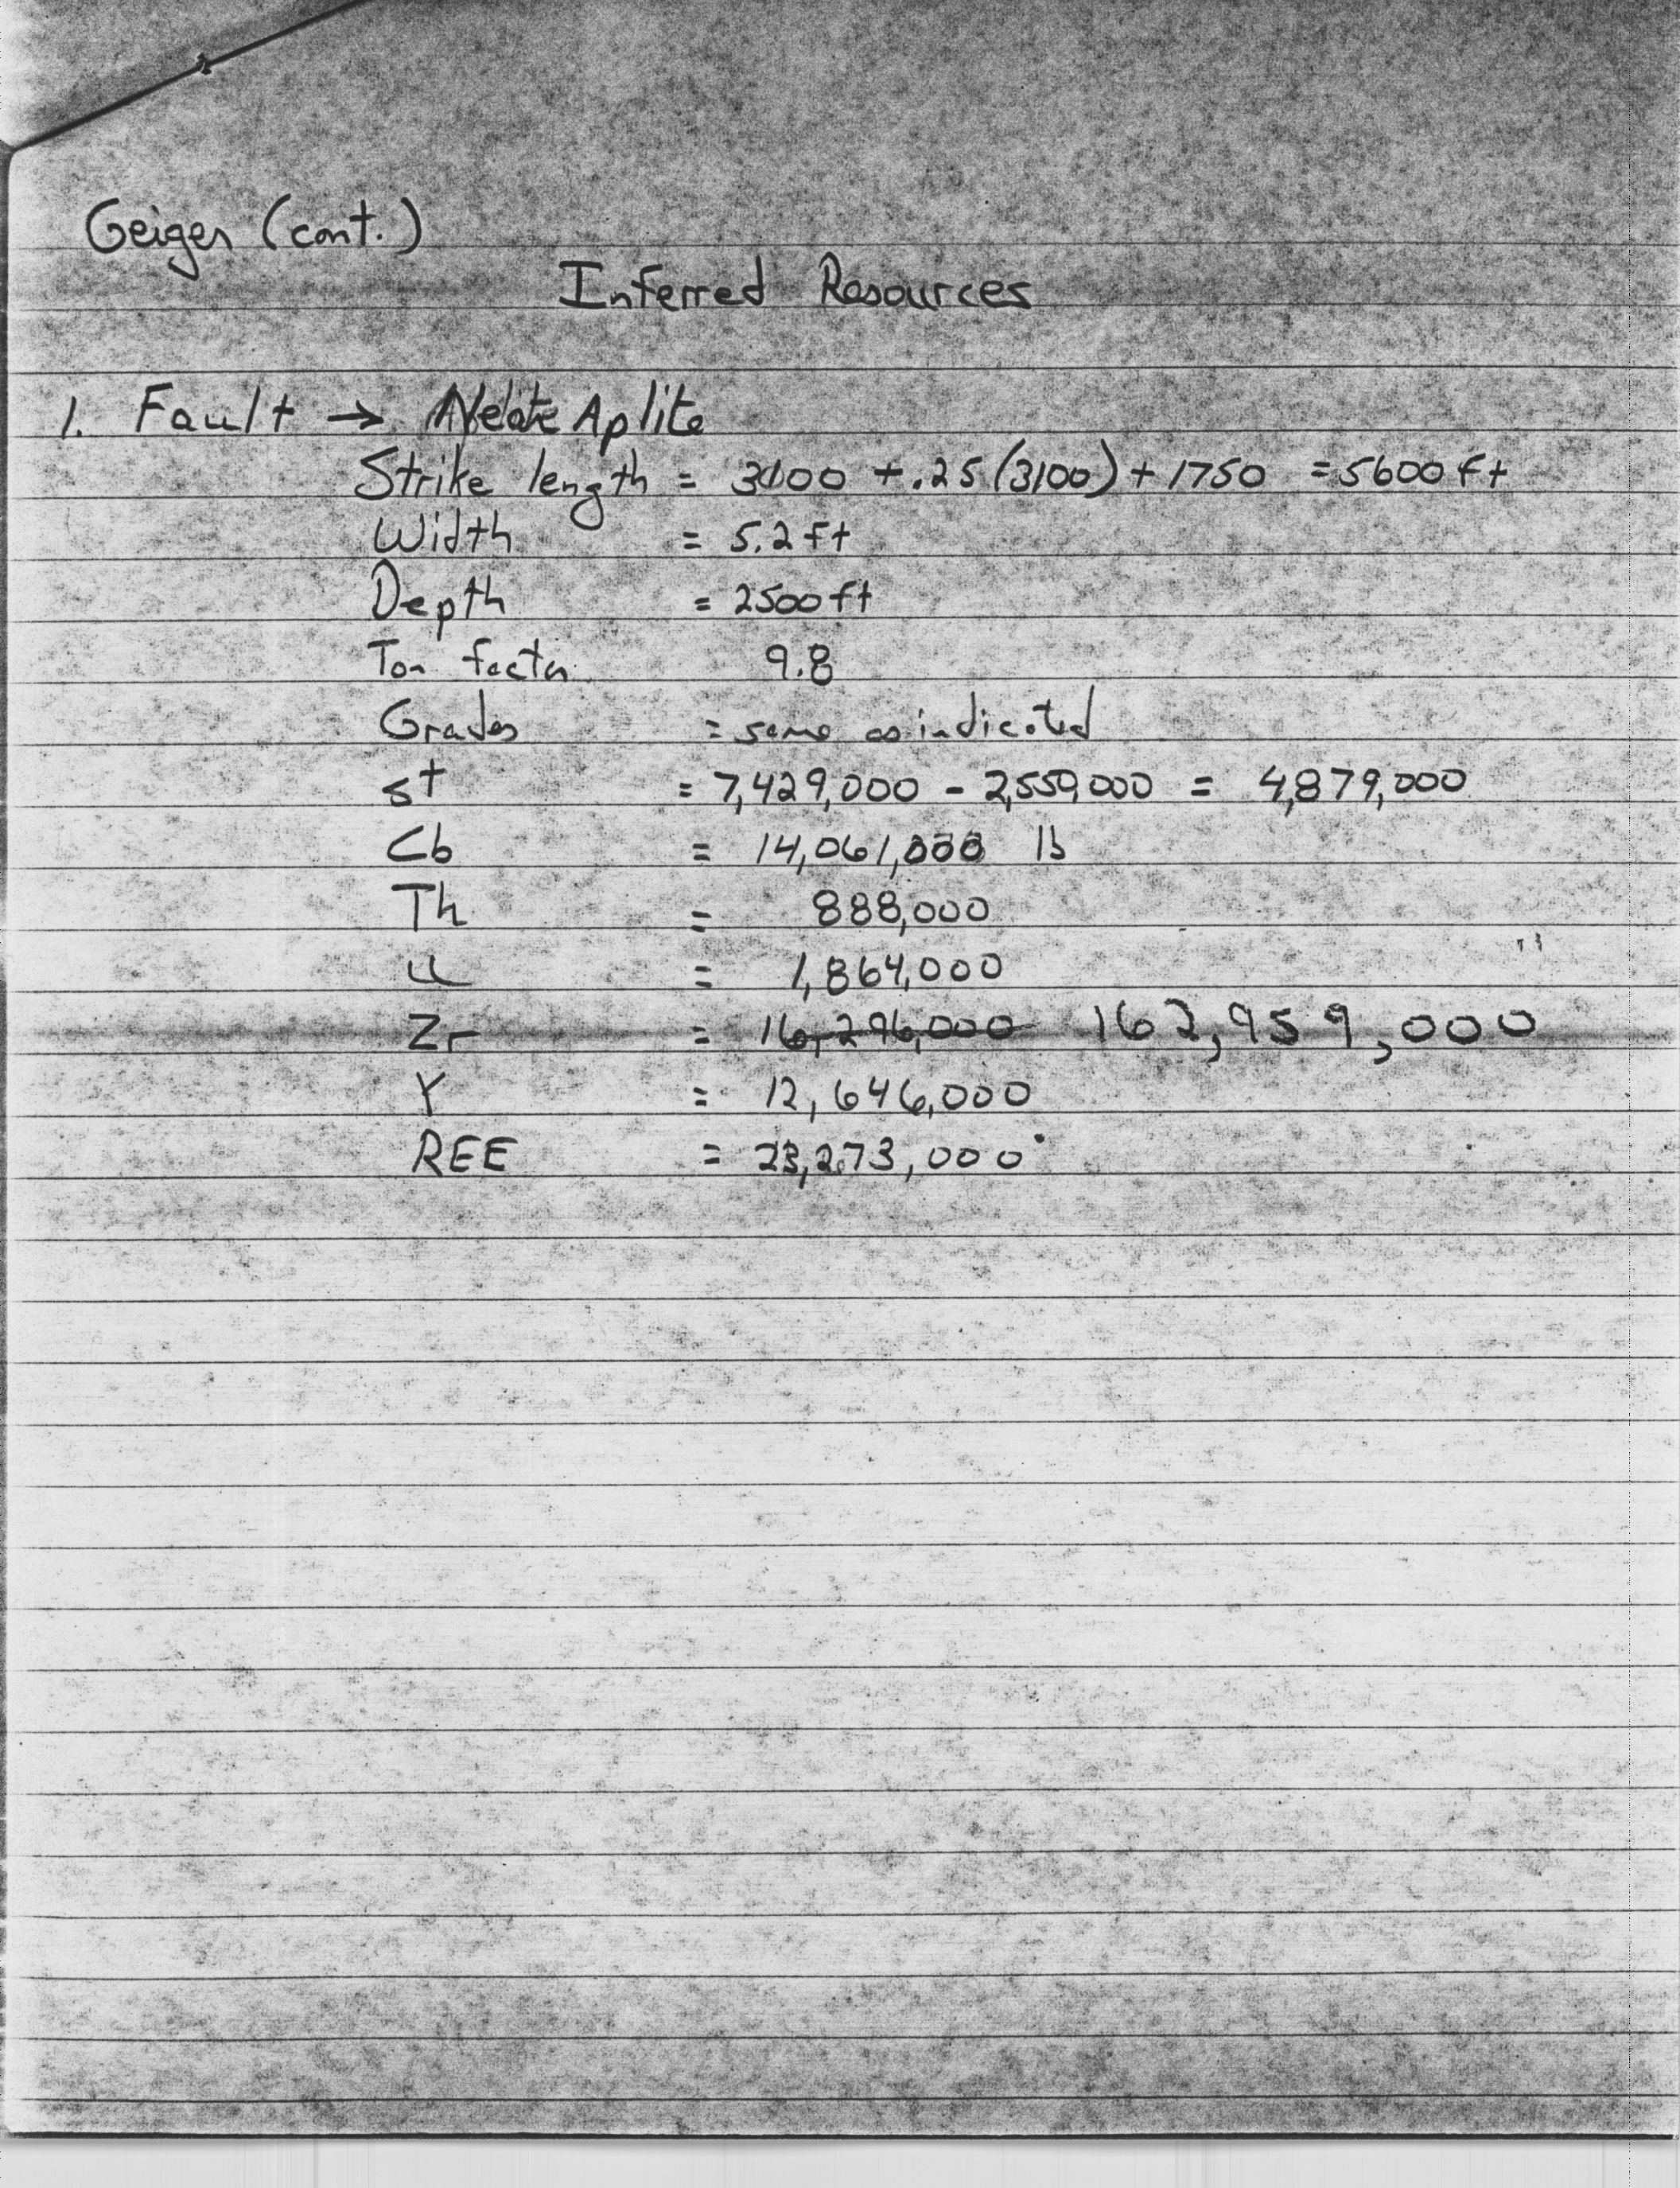 Geiger (cont.)
Inferred Resources
1. Fault → Aplite
Strike length = 3100 + .25(3100) + 1750 = 5600 ft
Width = 5.2 ft
Depth = 2500 ft
Ton factor 9.8
Grades = same as indicated
st = 7,429,000 - 2,550,000 = 4,879,000
Cb = 14,061,000 lb
Th = 888,000
U = 1,864,000
Zr = 16,296,000 162,959,000
Y = 12,646,000
REE = 23,273,000